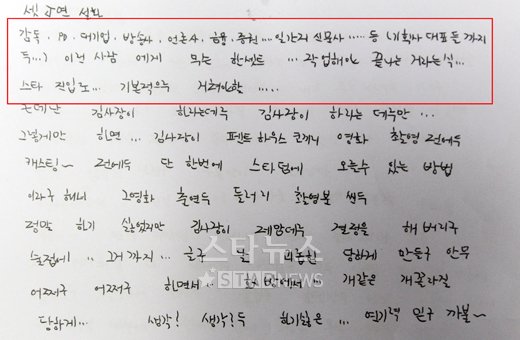 감독. PD. 대기업. 방송사. 언론사. 금융. 증권 ...일간지 신문사 ..... 등 (기획사 대표들까지
두...) 이런 사람 에게 한셋트 ... 작업해야 끝나는 거라는식...
스타 진입로... 기본적으루 거쳐야할 .....
근데난 김사장이 하라는데루 김사장이 하라는 데루만 ...
그렇게만 하면 ... 김사장이 펜트 하우스 코끼리 영화 촬영 전에두
캐스팅~ 전에두 단 한번에 스타덤에 오늘수 있는 방법
이라구 해니 그영화 출연두 들러리 촬영분 씬두
정말 하기 싫었지만 김사장이 제맘데루 결정을 해 버리구
술접에 .. 그거 까지 ... 글구 날 당하게 만든구
어쩌구 어쩌구 하면서 .. 밖에서 .. 개같은 개꼴라질
당하게... 생각? 생각?두 하기싫은 ...
스타뉴스
STARNEWS